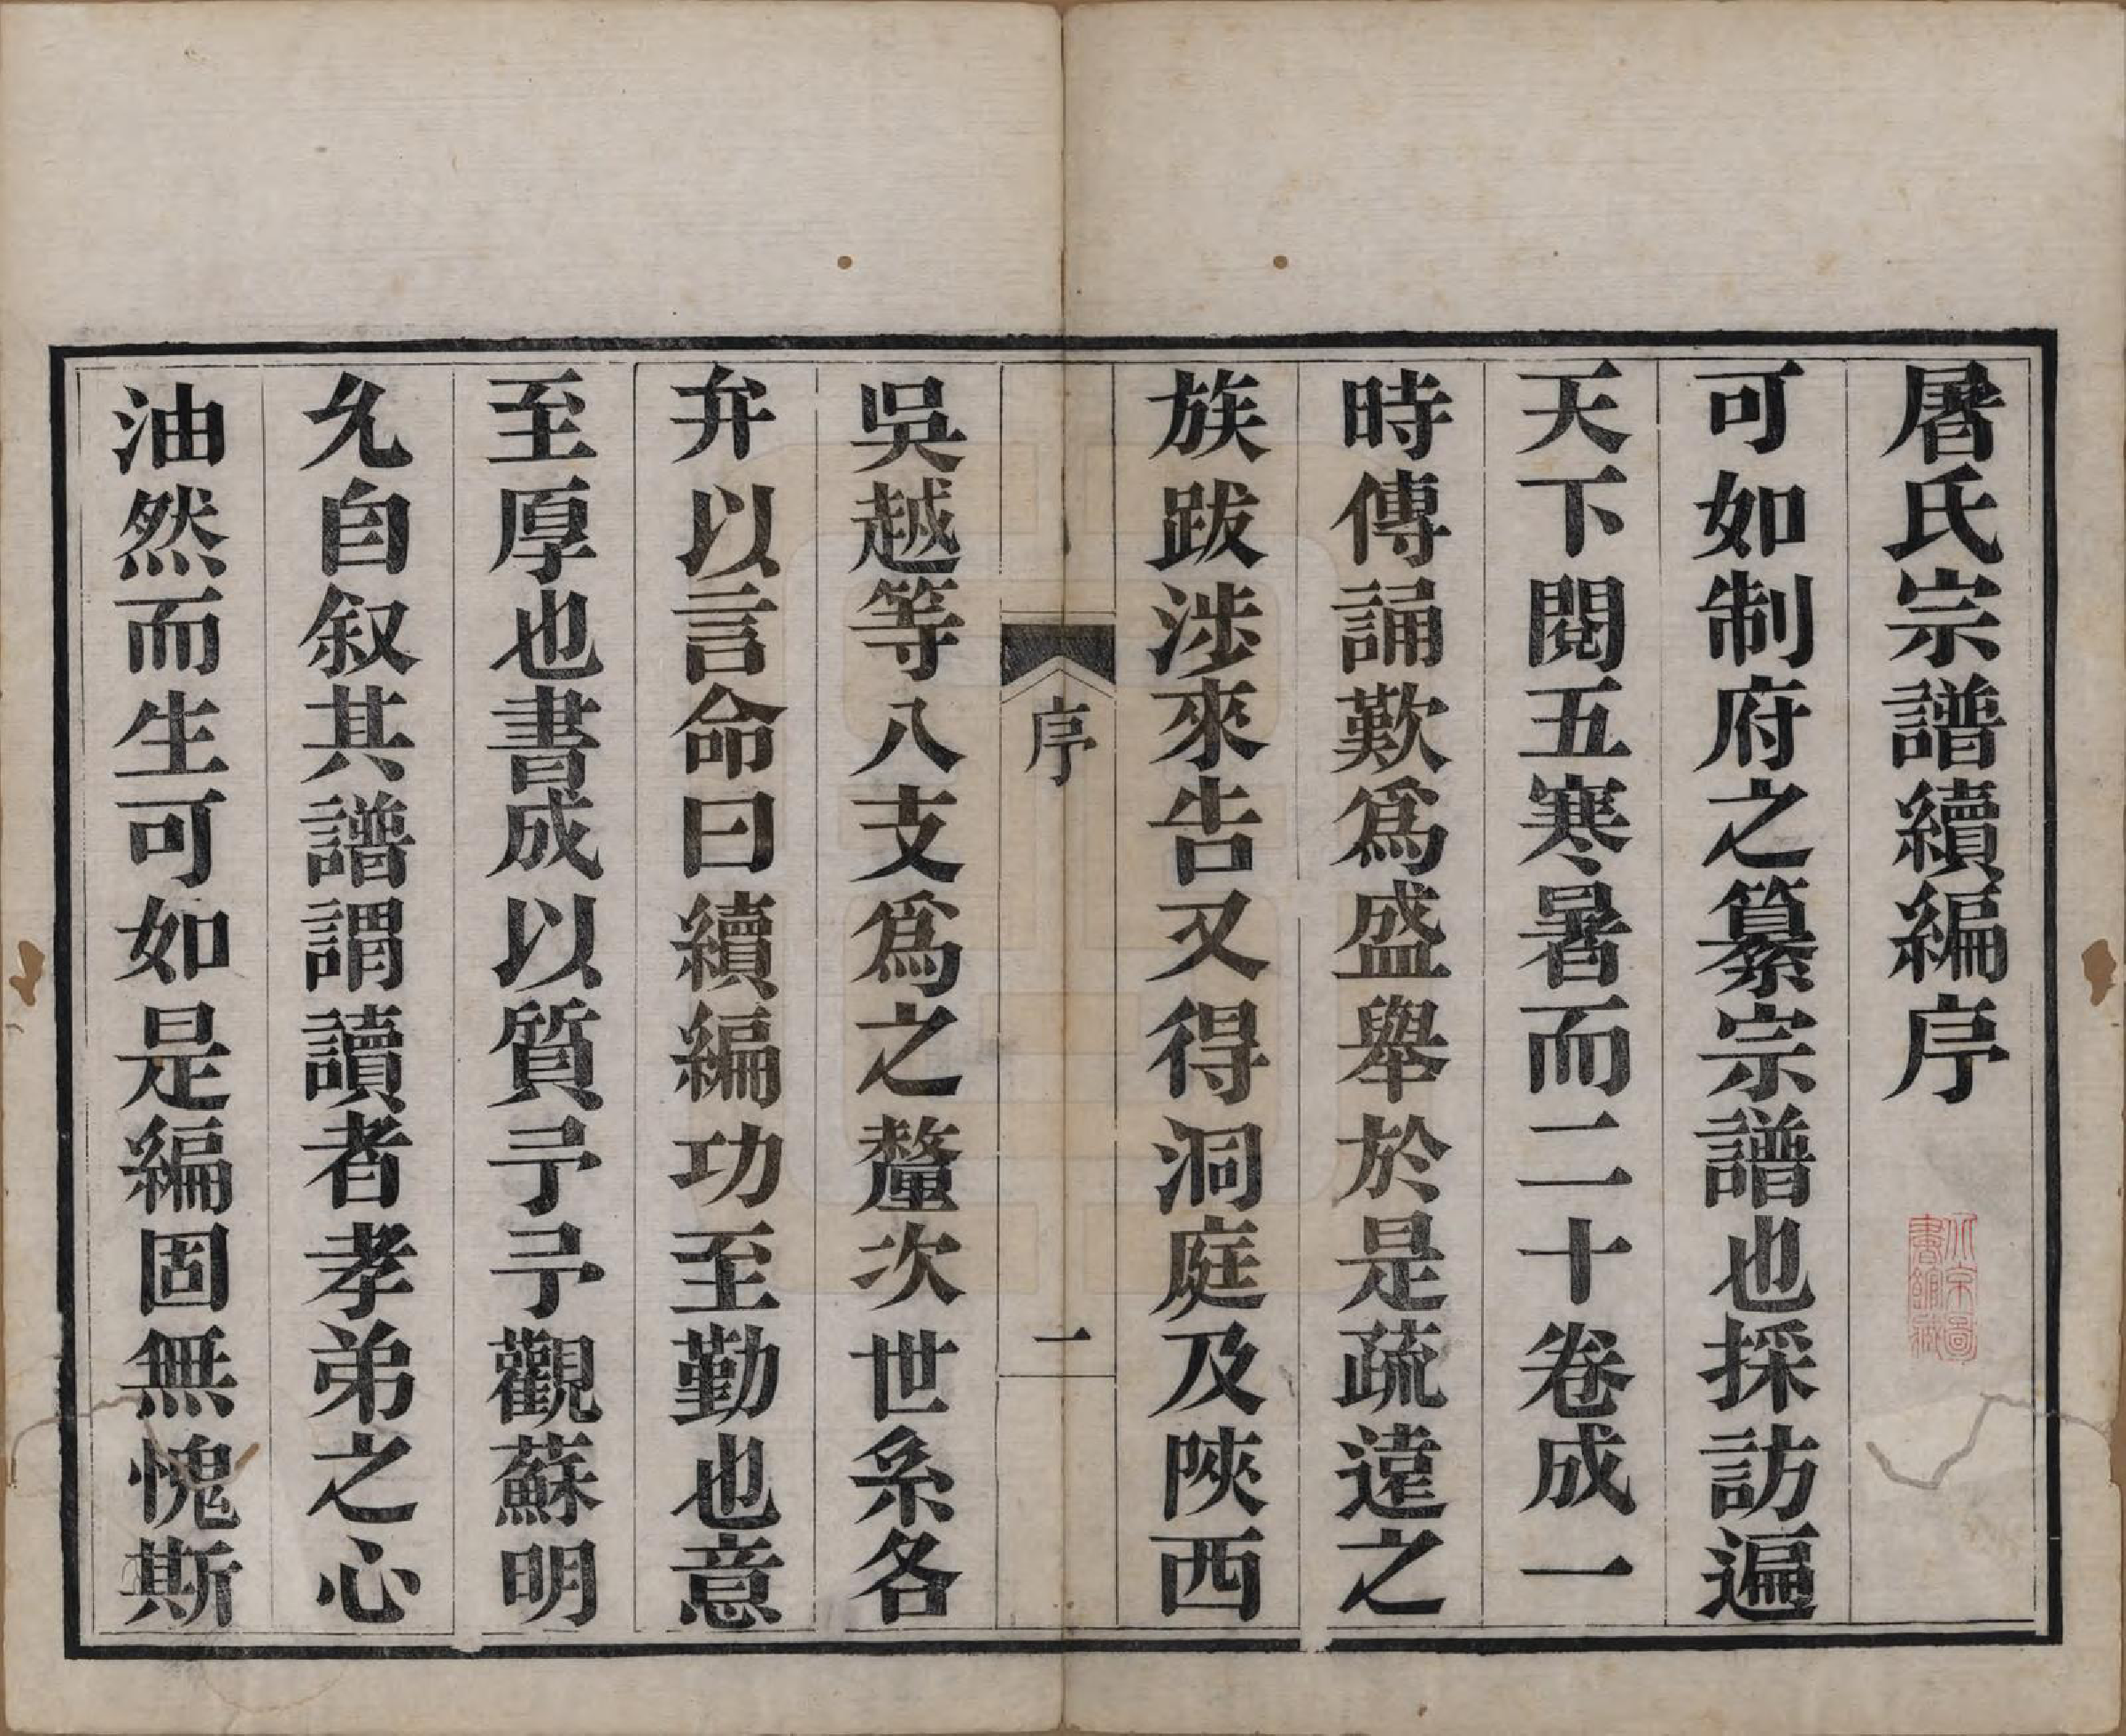 屠氏宗譜續編序
可如制府之纂宗譜也採訪遍
天下閱五寒暑而二十卷成一
時傳誦歎為盛舉於是疏遠之
族跋涉來告又得洞庭及陝西
序
一
吳越等八支為之釐次世系各
弁以言命曰續編功至勤也意
至厚也書成以質予予觀蘇明
允自叙其譜謂讀者孝弟之心
油然而生可如是編固無愧斯
北京圖
書館藏